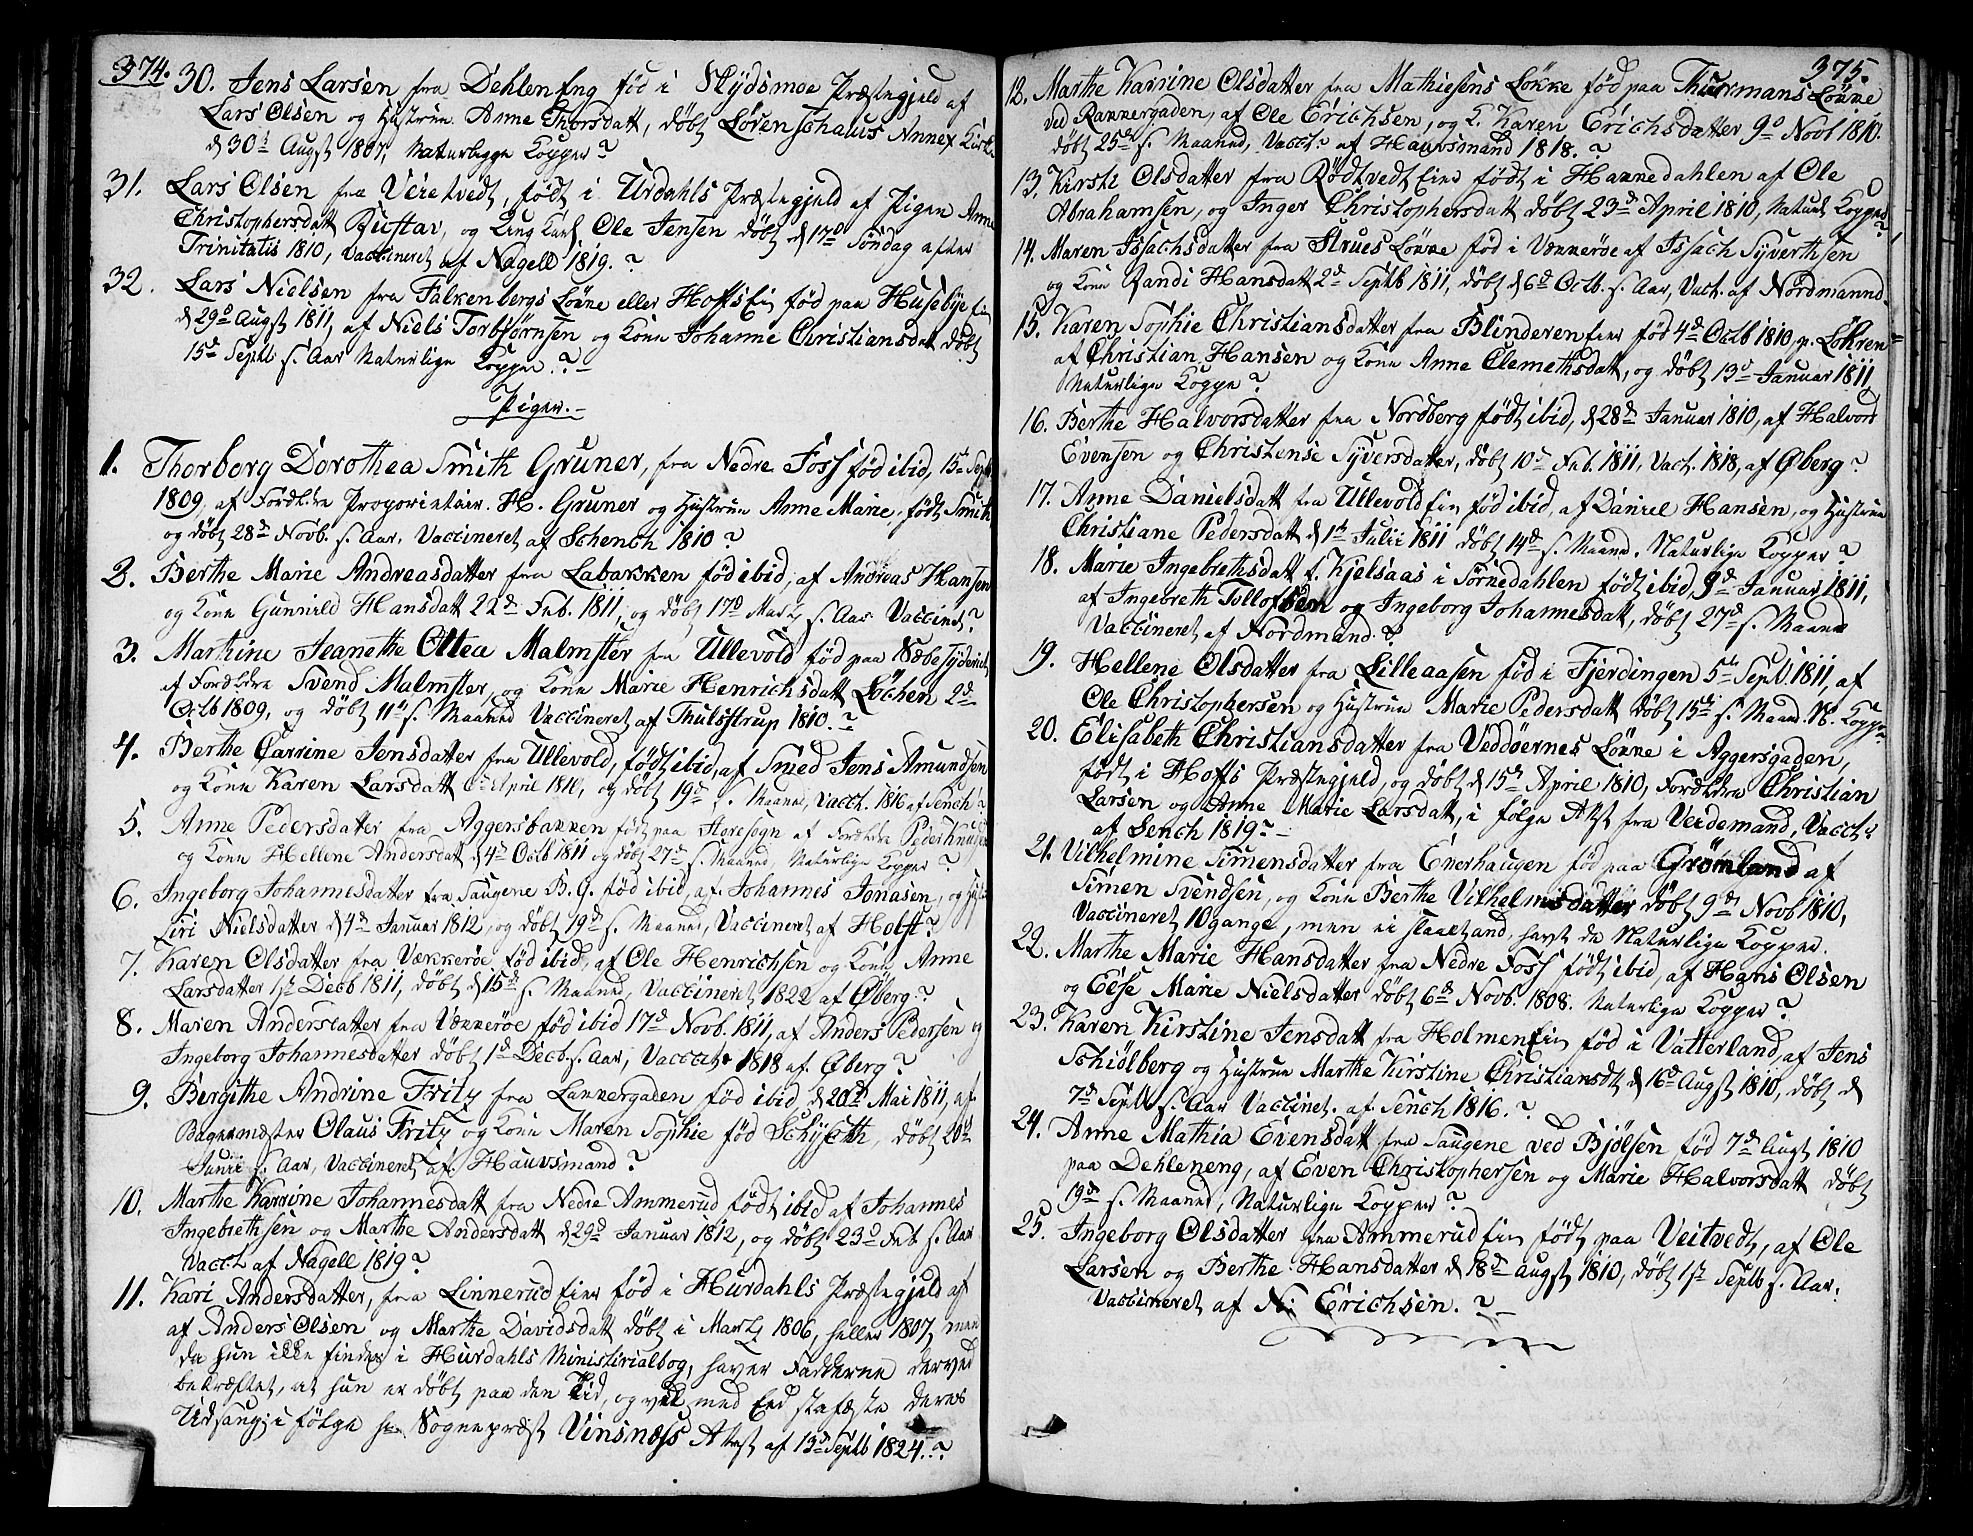 374.
30. Jens Larsen fra Dehleneng fød i Skydsmoe Præstegjeld af
Lars Olsen og Hustrue Anne Thorsdatt, døbt Sørenschaus Annex Kirke
d 30t Augst 1807, Naturligge Kopper?
31. Lars Olsen fra Veietvedt, født i Urdahls Præstegjeld af Pigen Anne
Christophersdatt Bustar, og Ung Karl Ole Jensen døbt d 17d Søndag after
Trinitatis 1810, Vaccineret af Nagell 1819.?
32. Lars Nielsen fra Falkenbergs Løkke eller Hoffs Eie fød paa Husebye Eie
d 29d Augst 1811, af Niels Torbjørnsen og Kone Johanne Christiansdat døbt
15d Septb s. Aar Naturlige Kopper.?
Piger.
1. Thorborg Dorothea Smith Gruner, fra Nedre Foss fød ibid, 15d Septb
1809, af Forældre Proporietair H. Gruner og Hustrue Anne Marie, født Smith
og døbt 28d Novb. s. Aar, Vaccineret af Schench 1810?
2. Berthe Marie Andreasdatter fra Labakken fød ibid, af Andreas Hansen
og Kone Gunnild Hansdatt 22d Feb. 1811, og døbt 17d Martz s. Aar Vaccinet?
3. Marthine Jeanethe Ottea Malmster fra Ullevold fød paa Sæbesyderiet,
af Forældre Svend Malmster, og Kone Marie Henrichsdatt Løchen 2d
Octb 1809, og døbt 11t s. Maaned Vaccineret af Thulstrup 1810.?
4. Berthe Carrine Jensdatter fra Ullevold, født ibid, af Smed Jens Amundsen
og Kone Karen Larsdatt April 1810, og døbt 19d s. Maaned, Vacct. 1816 af Sench?
5. Anne Pedersdatter fra Aggersbakken født paa Storesogn af Forældre Peder Knudsen
og Kone Hellene Andersdatt d 4d Octb 1811 og døbt 27d s. Maaned, Naturlige Kopper?
6. Ingeborg Johannesdatter fra Saugene B. G. fød ibid, af Johannes Jonasen, og
Siri Nielsdatter d 4d Januar 1812, og døbt 19d s. Maaned, Vaccineret af Holst?
7. Karen Olsdatter fra Vækkerøe fød ibid, af Ole Henrichsen og Kone Anne
Larsdatter 1st Decb 1811, døbt d 15de s. Maaned, Vaccineret 1822 af Øberg?
8. Maren Andersdatter fra Vækkerøe fød ibid 17d Novb. 1811, af Anders Pedersen og
Ingeborg Johannesdatter døbt 1d Decb. s. Aar, Vaccet 1818 af Øberg?
9. Bergithe Andrine Fritz fra Lakkergaden fød ibid, d 20d Mai 1811, af
Bagermester Olaus Fritz og Kone Maren Sophie fød Schjeth, døbt 20d
Junii s. Aar, Vaccineret af Hauvsmand?
10. Marthe Karrine Johannesdatt fra Nedre Ammerud født ibid af Johannes
Ingebrethsen og Marthe Andersdatt d 29d Januar 1812, og døbt 23d Feb s. Aar
Vacct af Nagell 1819?
11. Kari Andersdatter, fra Linnerud Eier fød i Hurdahls Præstegjeld af
af Anders Olsen og Marthe Davidsdatt døbt i Martz 1806, heller 1807, men
da hun ikke findes i Hurdahls Ministerialbog, haver Fadderne derved
bekræftet, at hun er døbt paa den Tid, og vil med Eed stafæste deres
Udsaug, i følge hr. Sognepræst Vinsnæss Attest af 13d Septb 1824.?
375.
12. Marthe Karrine Olsdatter fra Mathiesens Løkke fød paa Thurmans Løkke
ved Rakkergaden, af Ole Erichsen, og K. Karen Erichsdatter 9d Novb 1810.
døbt 25d s. Maaned, Vacct. af Hauvsmand 1818.?
13. Kirsti Olsdatter fra Rødtvedt Eie født i Hakkedahlen af Ole
Abrahamsen, og Inger Christophersdatt døbt 23d April 1810, Naturl Kopper?
14. Maren Issachsdatter fra Strues Løkke fød i Vækkerøe af Issach Syverthsen
og Kone Randi Hansdatt 2d Septb 1811, døbt d 6d Octb. s. Aar, Vact. af Nordmannd.
15. Karen Sophie Christiansdatter fra Blinderen Eier fød 4d Octb 1810, p. Løkren
af Christian Hansen og Kone Anne Clemethsdatt, og døbt 13d Januar 1811,
Naturlige Koppe?
16. Berthe Halvorsdatter fra Nordberg født ibid, d 28d Januar 1810, af Halvord
Evensen og Christense Syversdatter, døbt 10d Feb. 1811, Vact. 1818, af Øberg?
17. Anne Danielsdatt fra Ullevold Eie fød ibid, af Daniel Hansen, og Hustrue
Christiane Pedersdatt d 1t Julii 1811 døbt 14d s. Maaned. Naturlige Kopper?
18. Marie Ingebrethsdatt f. Kjelsaas i Sørkedahlen født ibid, 9d Januar 1811,
af Ingebreth Tollofsen og Ingeborg Johannesdatt, døbt 27d s. Maaned
Vaccineret af Nordmand.?
19. Hellene Olsdatter fra Lilleaasen fød i Fjerdingen 5te Septb. 1811, af
Ole Christophersen og Hustrue Marie Pedersdatt døbt 15d s. Maaned. N. Kopper
20. Elisabeth Christiansdatter fra Veddøernes Løkke i Aggersgaden,
født i Hoffs Præstegjeld, og døbt d 15de April 1810, Forældre Christian
Larsen og Anne Marie Larsdatt, i følge Atst fra Veidemand, Vacct
af Sench 1819?
21. Vilhelmine Simensdatter fra Enerhaugen fød paa Grønland af
Simen Svendsen, og Kone Berthe Vilhelmsdatter døbt 9de Novb 1810,
Vaccineret 10 gange, men ei slaaetand, havt de Naturlige Kopper.
22. Marthe Marie Hansdatter fra Nedre Foss født ibid, af Hans Olsen
og Eese Marie Nielsdatter døbt 6d Novb. 1808. Naturlige Kopper?
23. Karen Kirstine Jensdatt fra Holmen Eie fød i Vatterland, af Jens
Schiølberg og Hustrue Marthe Kirstine Christiansdt d 16d Augst 1810, døbt d
7d Septb s. Aar Vaccinet. af Sench 1816.?
24. Anne Mathia Evensdatt fra Saugene ved Bjølsen fød 7d Augst 1810
paa Dehleneng, af Even Christophersen og Marie Halvorsdatt døbt
19de s. Maaned, Naturlige Kopper?
25. Ingeborg Olsdatter fra Ammerud Eie født paa Veitvedt, af Ole
Larsen og Berthe Hansdatter d 18d Augst 1810, døbt 1st Septb s. Aar.
Vaccineret af N: Erichsen.?